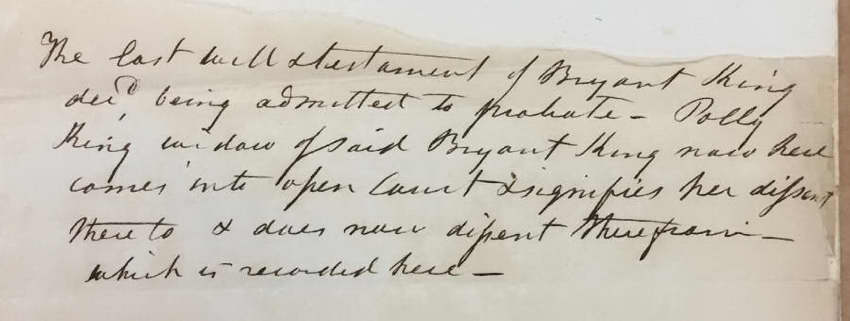 The last will & testament of Bryant King
decd, being admitted to probate - Polly
King widow of said Bryant King now here
comes into open Court & signifies her dissent
thereto & does now dissent therefrom -
which is recorded here -